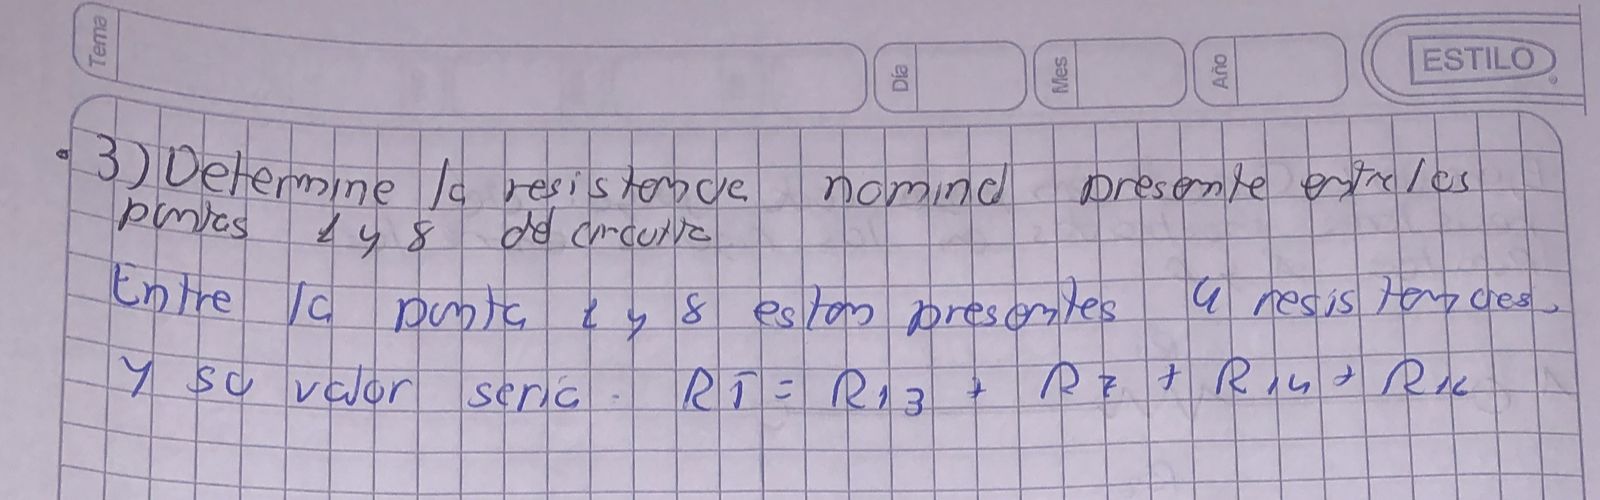 Tema
Día
Mes
Año
ESTILO
3) Determine la resistencia nominal presente entre los
puntos 1 y 8 del circuito
Entre la punta 1 y 8 estan presentes 4 resistencias.
y su valor seria. RT = R13 + R7 + R14 +